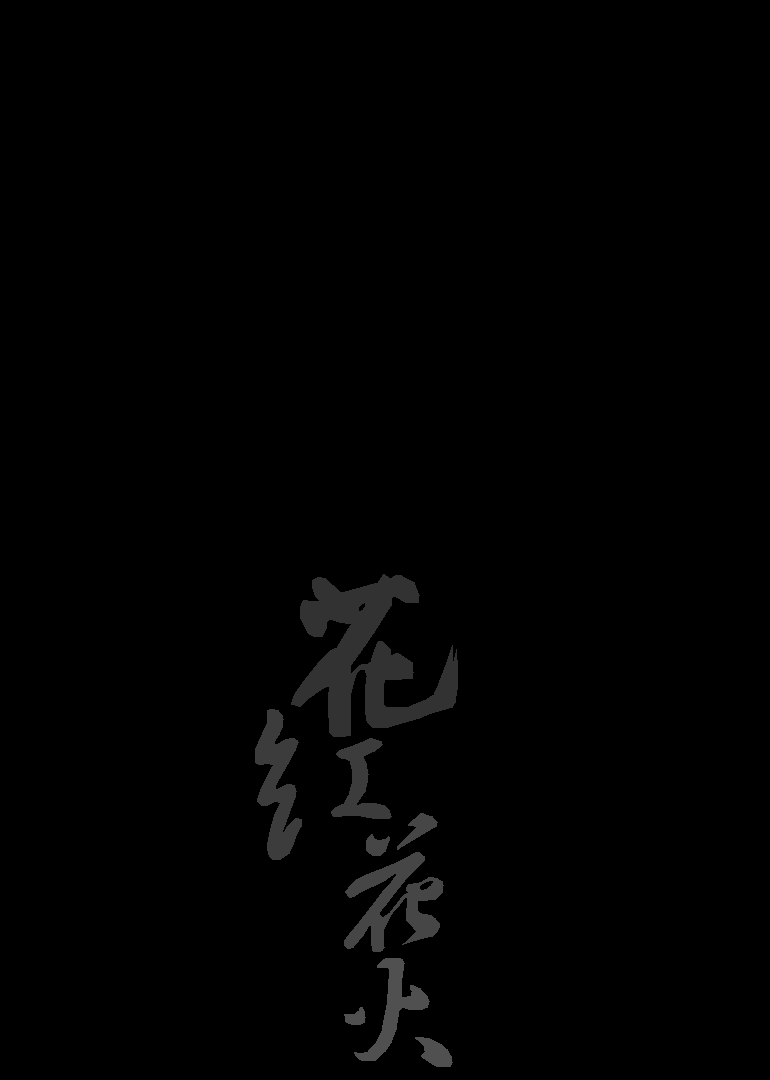 花红花火